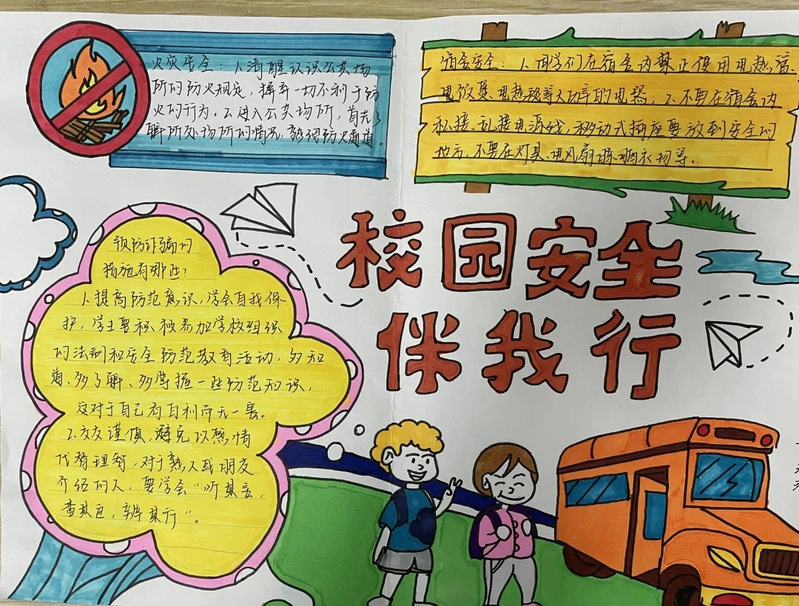 火灾安全:1.清醒认识公共场
所的防火规定,摒弃一切不利于防
火的行为。2.进入公共场所,首先了
解所处场所的情况,熟悉防火通道
宿舍安全:1.同学们在宿舍内禁止使用电热管
电饭煲、电热毯等大功率的电器,2.不要在宿舍内
私接、乱接电源线,移动式插座要放到安全的
地方,不要在灯具、电风扇上晾晒衣物等。
校园安全
伴我行
预防诈骗的
措施有哪些?
1.提高防范意识,学会自我保
护,学生要积极参加学校组织
的法制和安全防范教育活动,多知
道、多了解、多掌握一些防范知识,
这对于自己有百利而无一害。
2.交友谨慎,避免以感情
代替理智,对于熟人或朋友
介绍的人,要学会“听其言,
查其色,辨其行”。